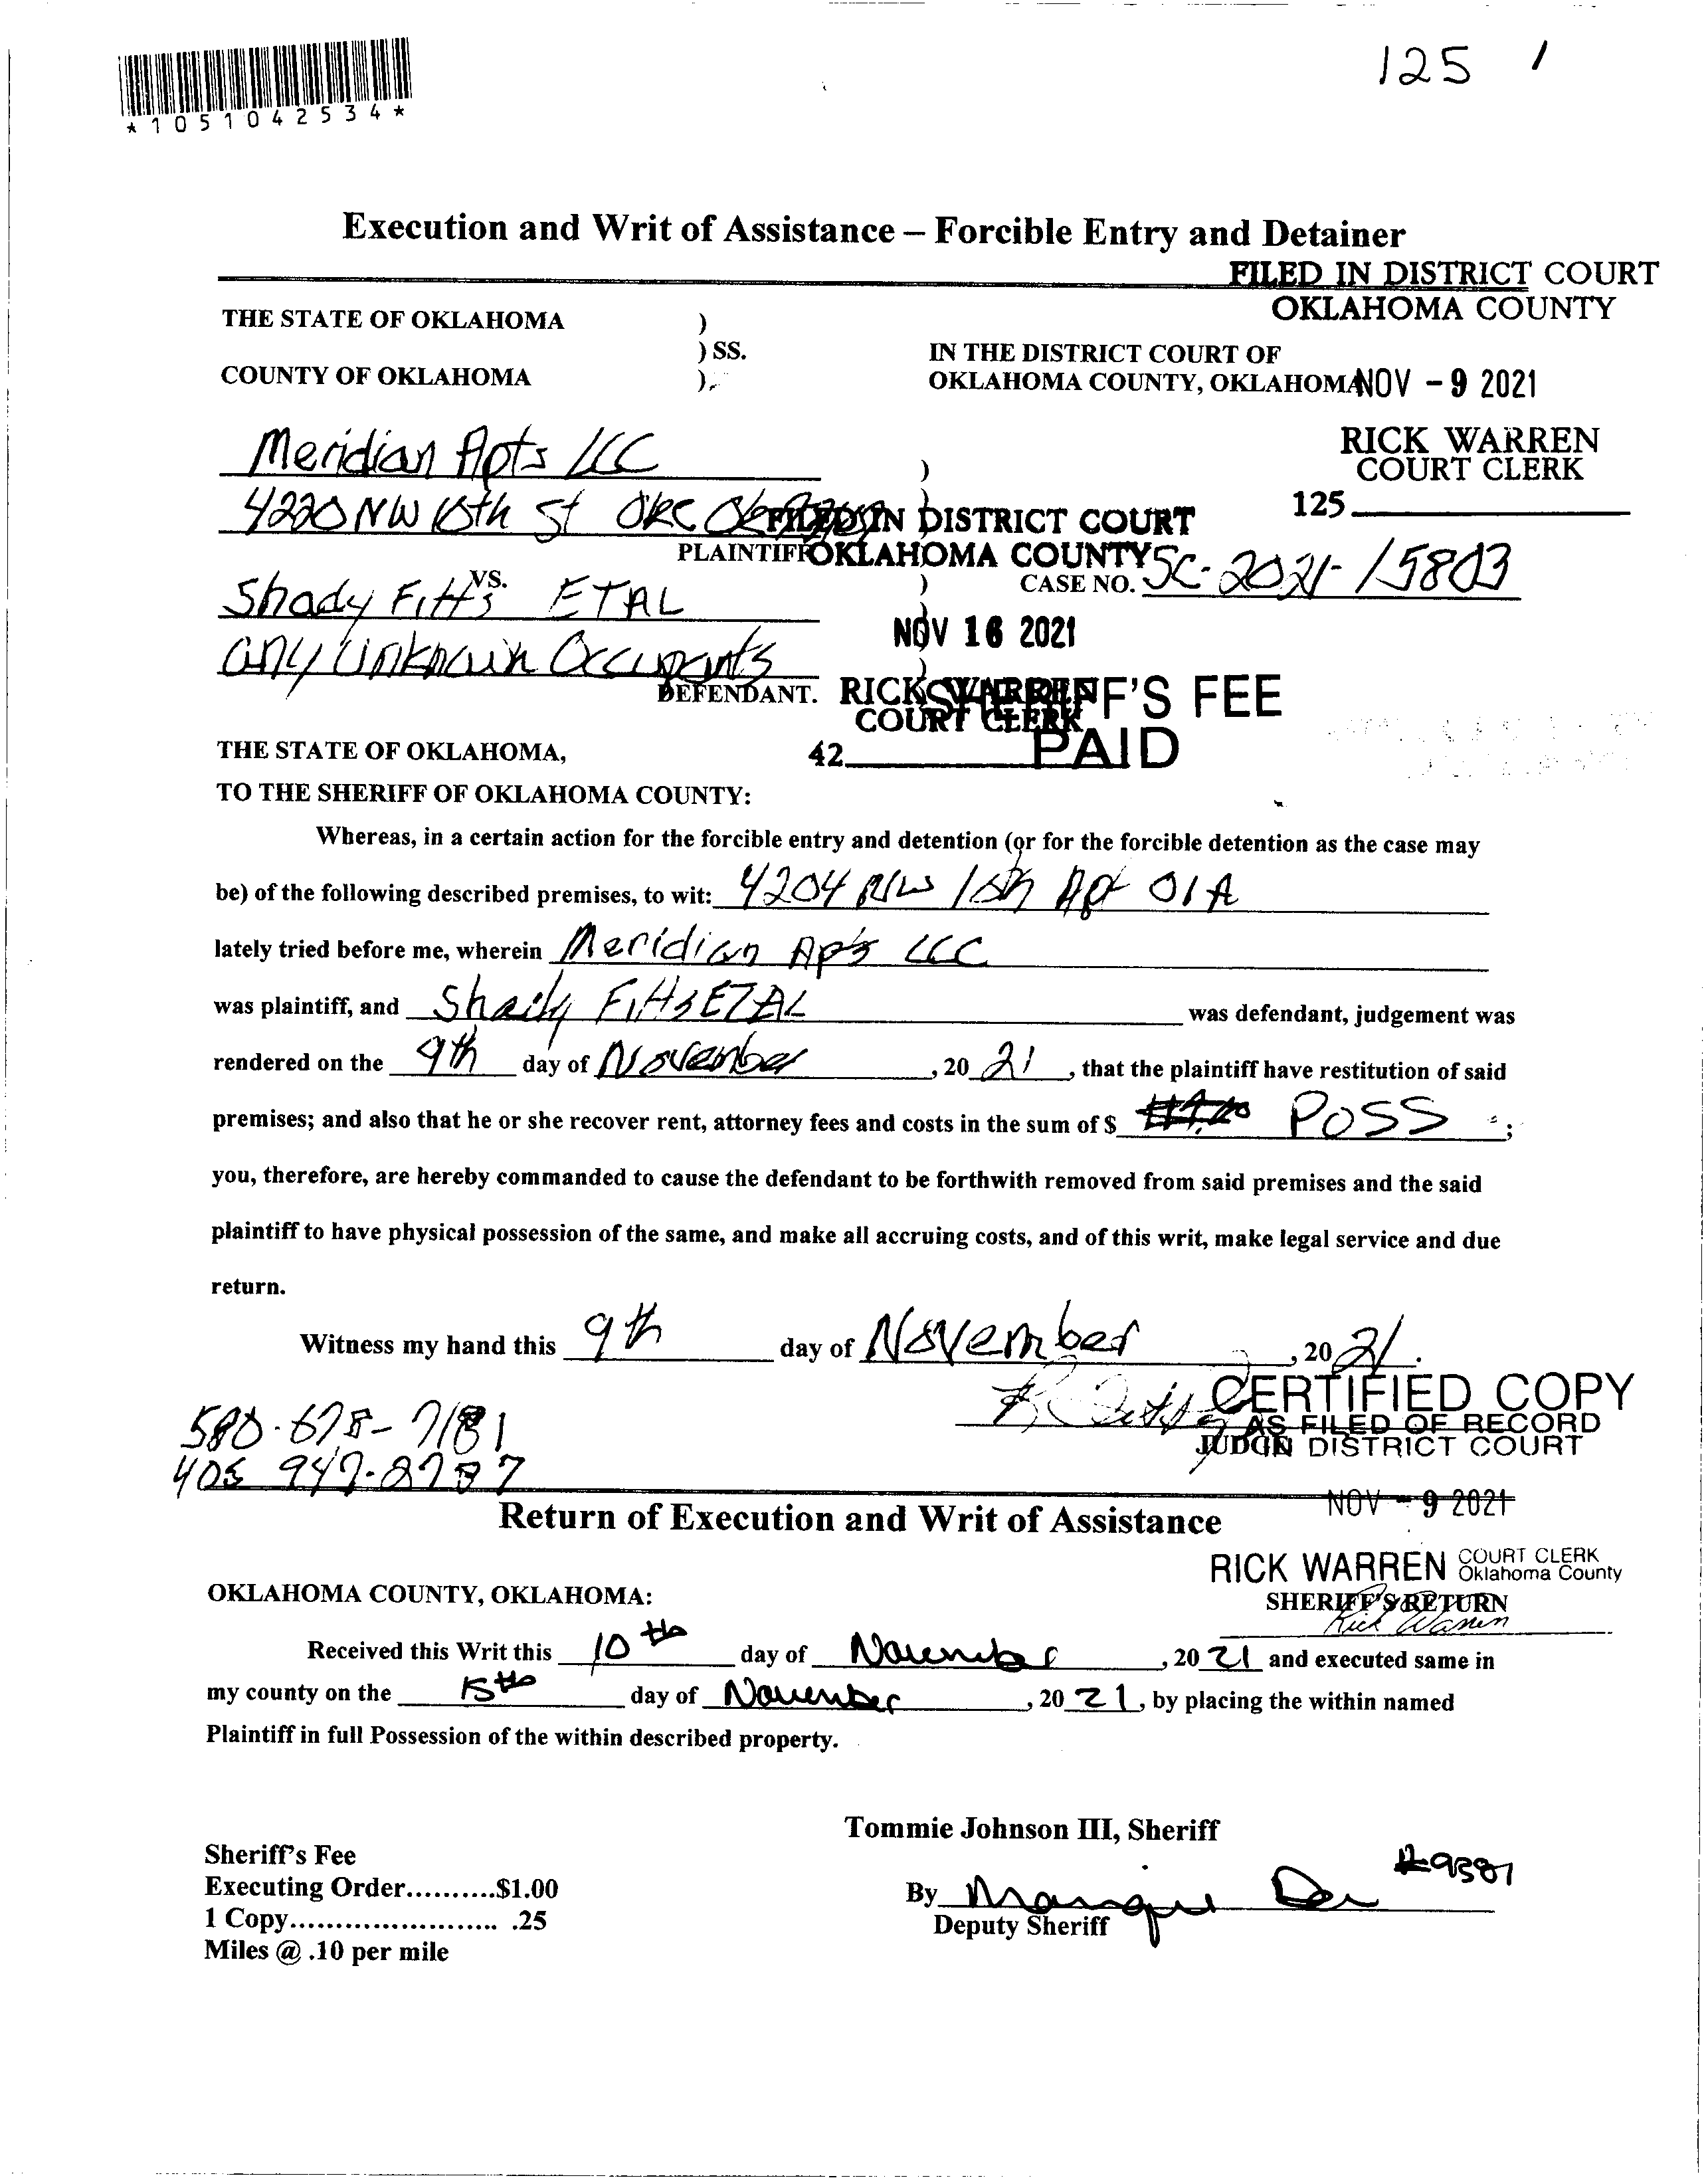 125 /
*1051042534*
Execution and Writ of Assistance – Forcible Entry and Detainer
FILED IN DISTRICT COURT
OKLAHOMA COUNTY
THE STATE OF OKLAHOMA )
) SS.
COUNTY OF OKLAHOMA )
IN THE DISTRICT COURT OF
OKLAHOMA COUNTY, OKLAHOMA
NOV - 9 2021
RICK WARREN
COURT CLERK
125
Meridian Apts LLC )
4220 NW 10th St OKC
PLAINTIFF
FILED IN DISTRICT COURT
OKLAHOMA COUNTY
VS.
CASE NO. SC-2021-15803
Shady Fitts ETAL )
NOV 16 2021
any unknown Occupants )
DEFENDANT.
RICK WARREN
COURT CLERK
SHERIFF'S FEE
PAID
42
THE STATE OF OKLAHOMA,
TO THE SHERIFF OF OKLAHOMA COUNTY:
Whereas, in a certain action for the forcible entry and detention (or for the forcible detention as the case may
be) of the following described premises, to wit: 4204 NW 10th Apt 01A
lately tried before me, wherein Meridian Apts LLC
was plaintiff, and Shady Fitts ETAL was defendant, judgement was
rendered on the 9th day of November, 20 21, that the plaintiff have restitution of said
premises; and also that he or she recover rent, attorney fees and costs in the sum of $ POSS ;
you, therefore, are hereby commanded to cause the defendant to be forthwith removed from said premises and the said
plaintiff to have physical possession of the same, and make all accruing costs, and of this writ, make legal service and due
return.
Witness my hand this 9th day of November, 20 21.
CERTIFIED COPY
AS FILED OF RECORD
IN DISTRICT COURT
JUDGE
580-678-7181
405 947-8787
NOV - 9 2021
Return of Execution and Writ of Assistance
RICK WARREN COURT CLERK
Oklahoma County
OKLAHOMA COUNTY, OKLAHOMA:
SHERIFF'S RETURN
Rick Warren
Received this Writ this 10th day of November, 20 21 and executed same in
my county on the 15th day of November, 20 21, by placing the within named
Plaintiff in full Possession of the within described property.
Tommie Johnson III, Sheriff
Sheriff's Fee
Executing Order..........$1.00
1 Copy....................... .25
Miles @ .10 per mile
By
Deputy Sheriff